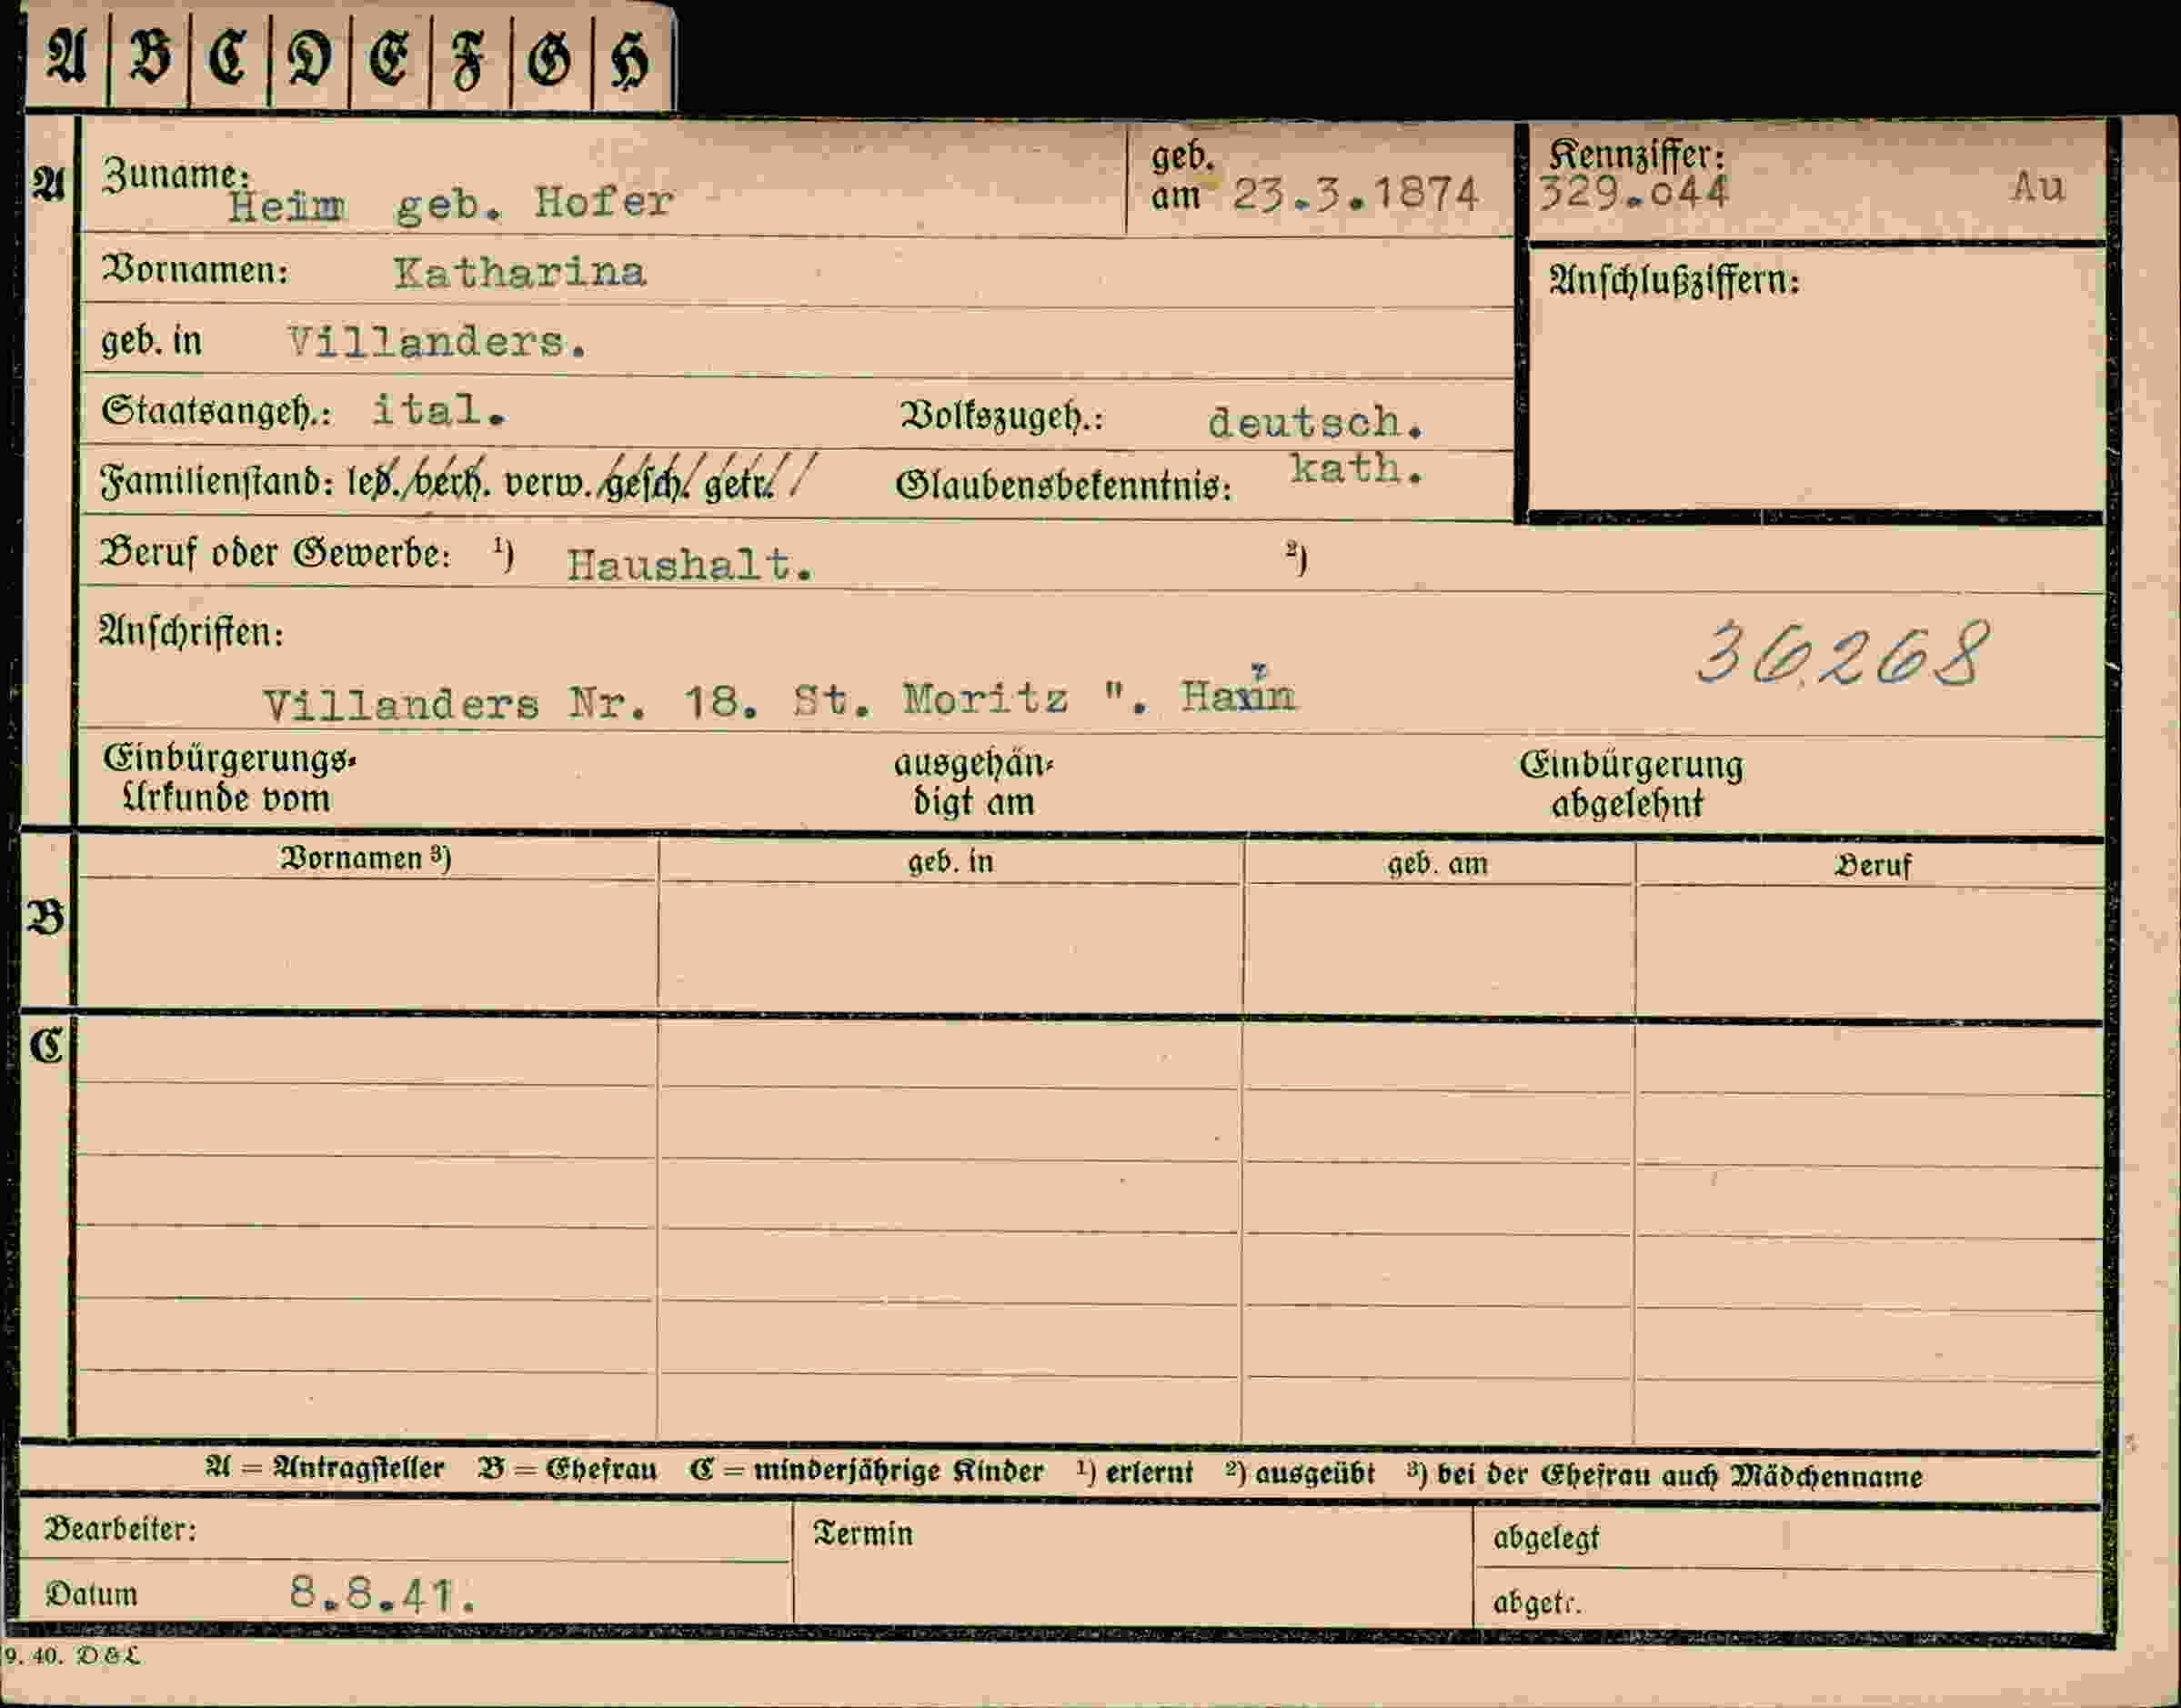 A B C D E F G H
A Zuname: Heim geb. Hofer geb. am 23.3.1874 Kennziffer: 329.o44 Au
Vornamen: Katharina Anschlußziffern:
geb. in Villanders.
Staatsangeh.: ital. Volkszugeh.: deutsch.
Familienstand: led. verh. verw. gesch. getr. Glaubensbekenntnis: kath.
Beruf oder Gewerbe: ¹) Haushalt. ²)
Anschriften: 36268
Villanders Nr. 18. St. Moritz ".
Einbürgerungs-Urkunde vom ausgehändigt am Einbürgerung abgelehnt
Vornamen ³) geb. in geb. am Beruf
B
C
A = Antragsteller B = Ehefrau C = minderjährige Kinder ¹) erlernt ²) ausgeübt ³) bei der Ehefrau auch Mädchenname
Bearbeiter: Termin abgelegt
Datum 8.8.41. abgetr.
9. 40. D & L